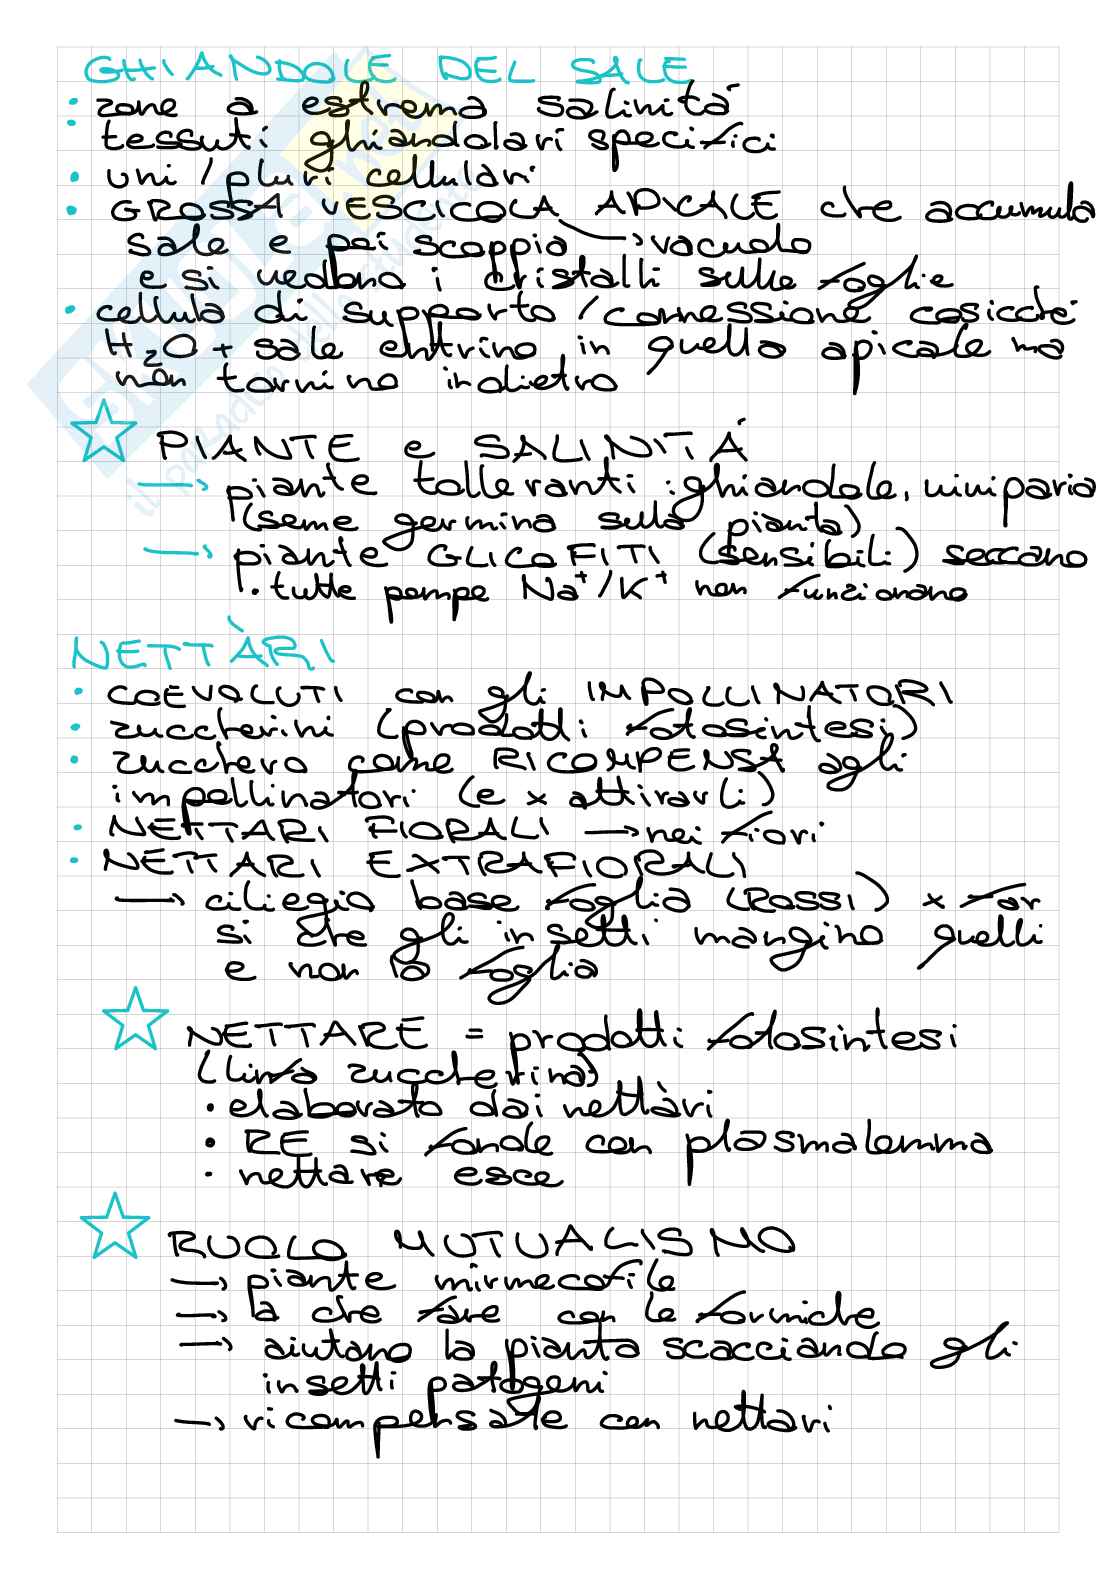 GHIANDOLE DEL SALE
• zone a estrema salinitá
• tessuti ghiandolari specifici
• uni / pluri cellulari
• GROSSA VESCICOLA APICALE che accumula
sale e poi scoppia → vacuolo
e si vedono i cristalli sulle foglie
• cellula di supporto / connessione cosicché
H₂O + sale entrino in quella apicale ma
non tornino indietro
☆ PIANTE e SALINITÁ
→ piante tolleranti : ghiandole, viviparia
(seme germina sulla pianta)
→ piante GLICOFITI (sensibili) seccano
• tutte pompe Na⁺/K⁺ non funzionano
NETTÀRI
• COEVOLUTI con gli IMPOLLINATORI
• zuccherini (prodotti fotosintesi)
• zucchero come RICOMPENSA agli
impollinatori (e x attirarli)
• NETTARI FIORALI → nei fiori
• NETTARI EXTRAFIORALI
→ ciliegio base foglia (ROSSI) x far
si che gli insetti mangino quelli
e non la foglia
☆ NETTARE = prodotti fotosintesi
(linfa zuccherina)
• elaborato dai nettàri
• RE si fonde con plasmalemma
• nettare esce
☆ RUOLO MUTUALISMO
→ piante mirmecofile
→ a che fare con le formiche
→ aiutano la pianta scacciando gli
insetti patogeni
→ ricompensate con nettari